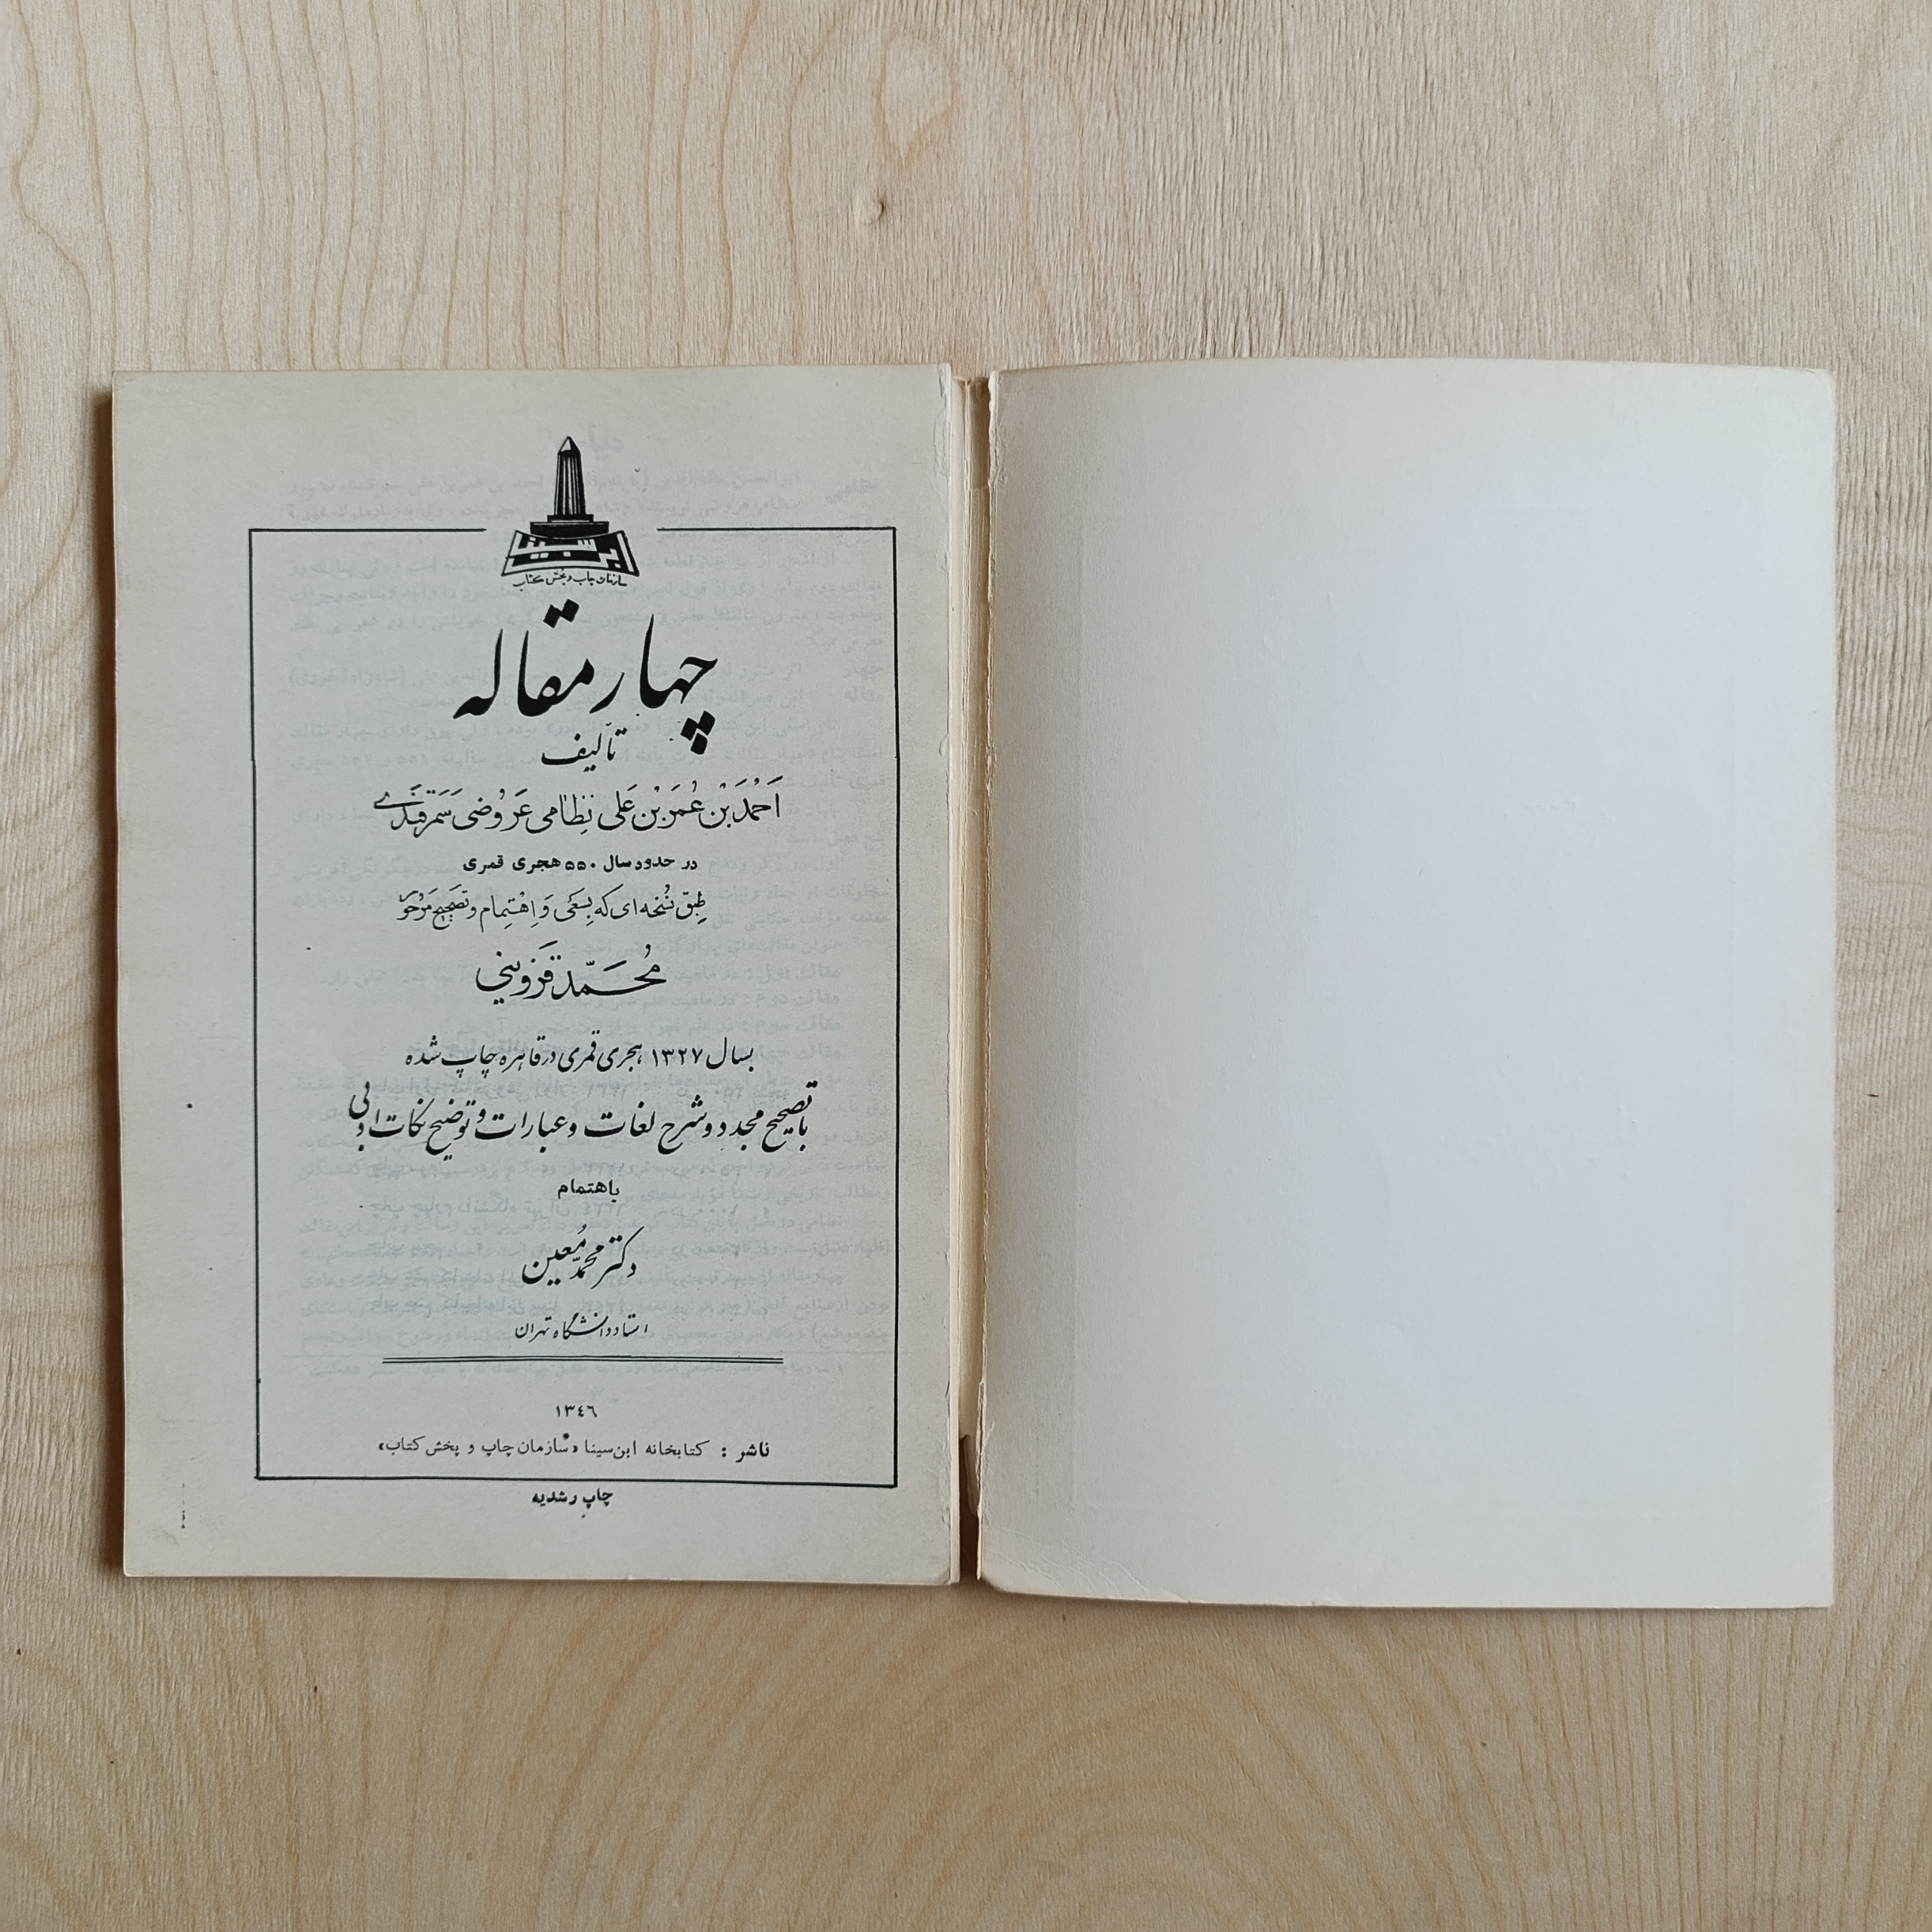 ابن سینا
سازمان چاپ و پخش کتاب
چهار مقاله
تألیف
اَحْمَدبْن عُمَربْن عَلی نِظامی عَروُضی سَمَرقَندی
در حدود سال ۵۵۰ هجری قمری
طبق نُسخه ای که بسَعی وَ اِهْتِمام و تصَحیح مَرحوُم
مُحَمَّد قَزویني
بسال ۱۳۲۷ هجری قمری در قاهره چاپ شده
با تصحیح مجدد و شرح لغات و عبارات و توضیح نکات ادبی
باهتمام
دکتر محمّد مُعین
استاد دانشگاه تهران
۱۳۴۶
ناشر : کتابخانه ابن سینا «سازمان چاپ و پخش کتاب»
چاپ رشدیه